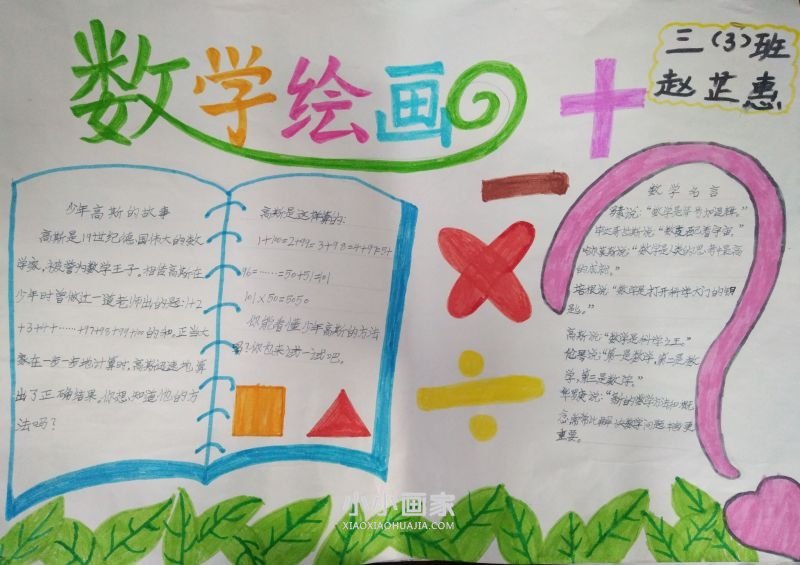 数学绘画
三(3)班
赵芷惠
少年高斯的故事
高斯是19世纪德国伟大的数
学家,被誉为数学王子。相传高斯在
少年时曾做过一道老师出的题:1+2
+3+4+……+97+98+99+100的和,正当大
家在一步一步地计算时,高斯迅速地算
出了正确结果。你想知道他的方
法吗?
高斯是这样算的:
1+100=2+99=3+98=4+97=5+
96=……=50+51=101
101×50=5050
你能看懂少年高斯的方法
吗?你也来试一试吧。
数学名言
说:“数学是符号加逻辑。”
毕达哥拉斯说:“数支配着宇宙。”
说:“数学是人类的思考中最高
的成就。”
培根说:“数学是打开科学大门的钥
匙。”
高斯说:“数学是科学之王。”
伦琴说:“第一是数学,第二是数
学,第三是数学。”
说:“新的数学方法和概
念,常常比解决数学问题本身更
重要。
小小画家
XIAOXIAOHUAJIA.COM